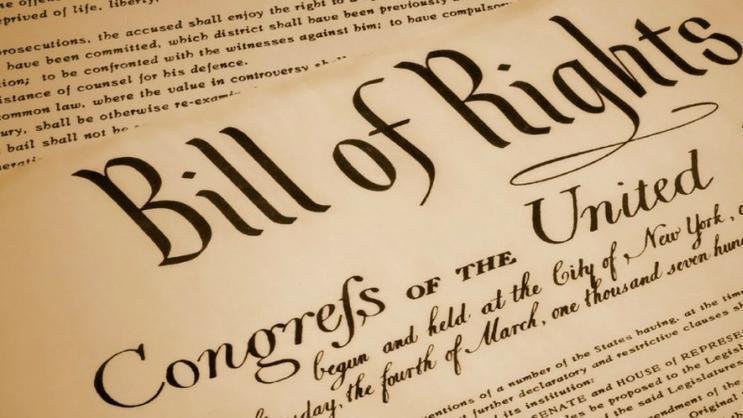 prived of life, liberty,
prosecutions, the accused shall enjoy the right to a
have been committed, which district shall have been previously
tion; to be confronted with the witnesses against him; to have compulsory
istance of counsel for his defence.
common law, where the value in controversy shall
ury, shall be otherwise re-exami
bail shall not be
Bill of Rights
Congreſs OF THE United
begun and held at the City of New York,
the fourth of March, one thousand seven hun
ventions of a number of the States having, at the time
further declaratory and restrictive clauses
its institution:
SENATE and HOUSE of REPRESE
be proposed to the Legisl
said Legislatures
Original